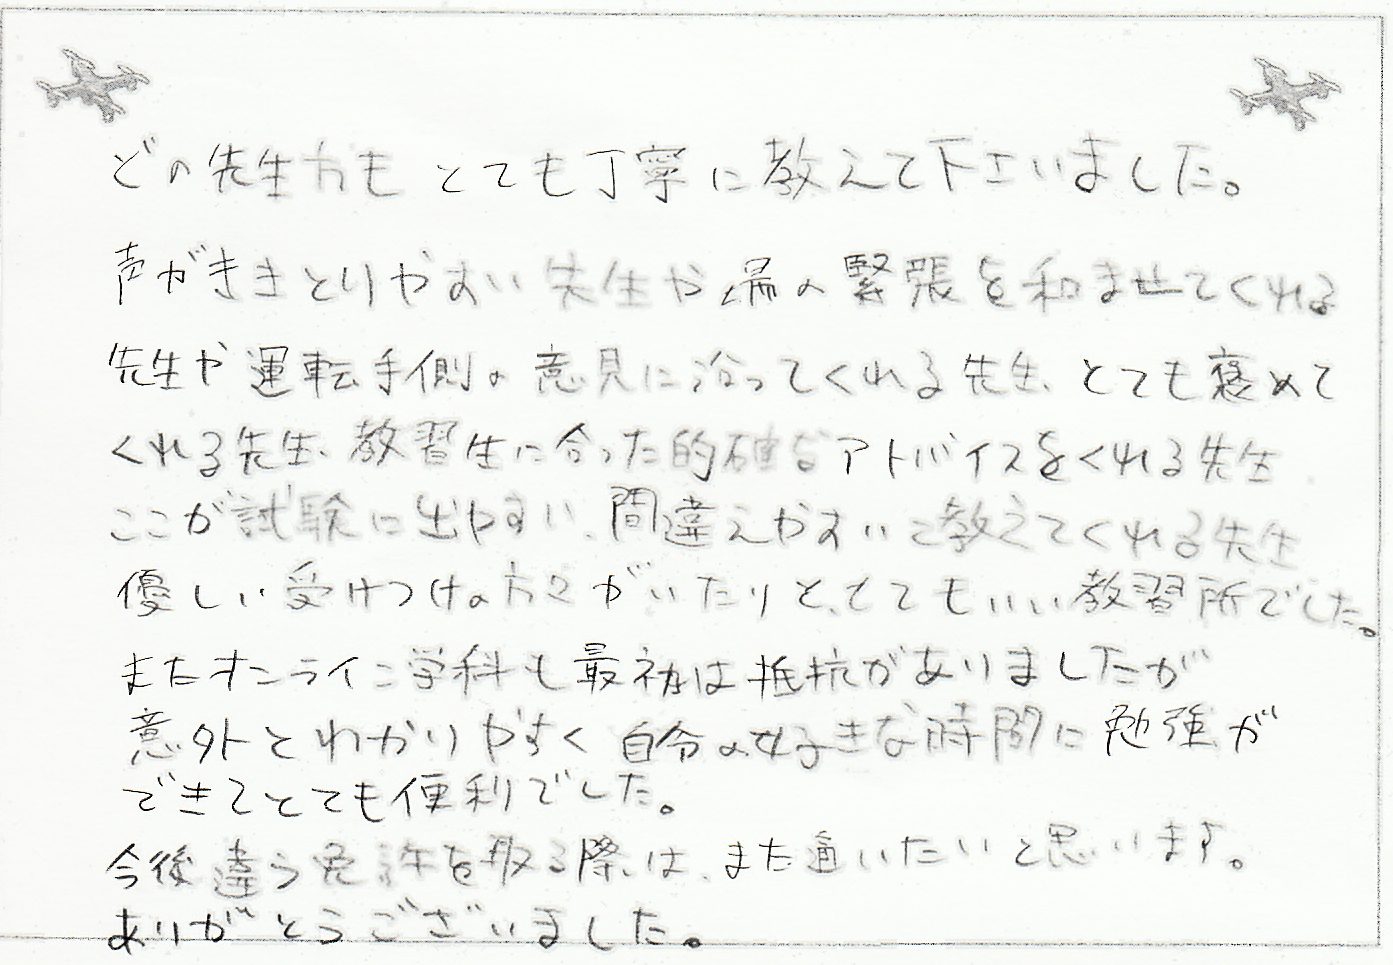 どの先生方もとても丁寧に教えて下さいました。
声がききとりやすい先生や場の緊張を和ませてくれる
先生や運転手側の意見に沿ってくれる先生、とても褒めて
くれる先生、教習生に合った的確なアドバイスをくれる先生
ここが試験に出やすい、間違えやすいと教えてくれる先生
優しい受けつけの方々がいたりと、とてもいい教習所でした。
またオンライン学科も最初は抵抗がありましたが
意外とわかりやすく自分の好きな時間に勉強が
できてとても便利でした。
今後違う免許を取る際は、また通いたいと思います。
ありがとうございました。